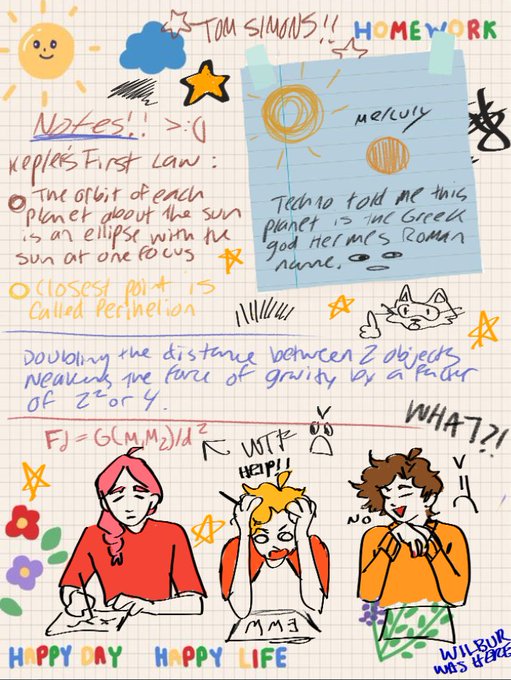 TOM SIMONS!!
HOMEWORK
Notes!! >:(
Kepler's First Law:
The orbit of each
planet about the sun
is an ellipse with the
sun at one focus
Closest point is
Called Perihelion
mercury
Techno told me this
planet is the Greek
god Hermes Roman
name.
Doubling the distance between 2 objects
weakens the force of gravity by a factor
of 2² or 4.
WHAT?!
FJ = G(M₁M₂)/d²
WTF
HELP!!
NO
HAPPY DAY HAPPY LIFE
WILBUR
WAS HERE